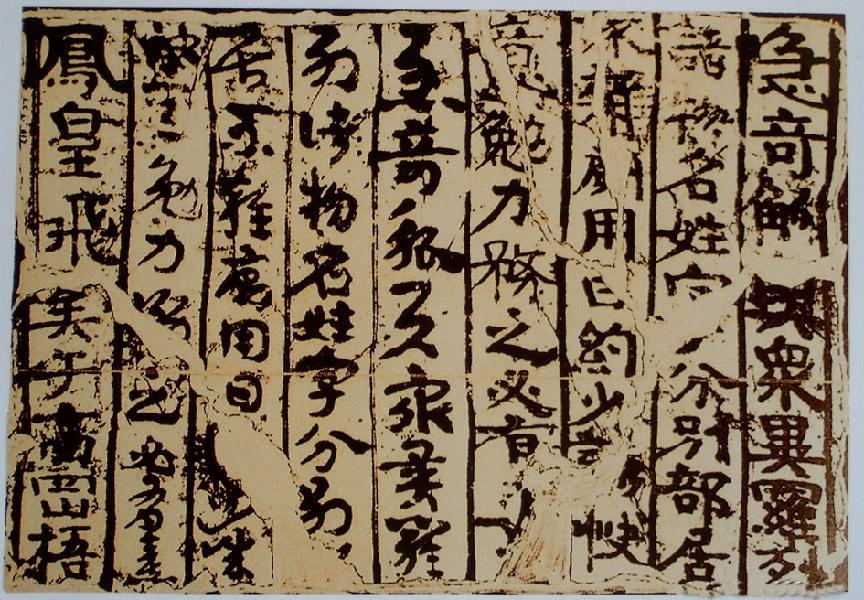 急奇觚與衆異羅列
諸物名姓字分別部居
不雜廁用日約少誠快
意勉力務之必有
急奇觚与衆異羅
列諸物名姓字分別
居不雜廁用日
意勉力務之必有憙
鳳皇飛矣于高岡梧